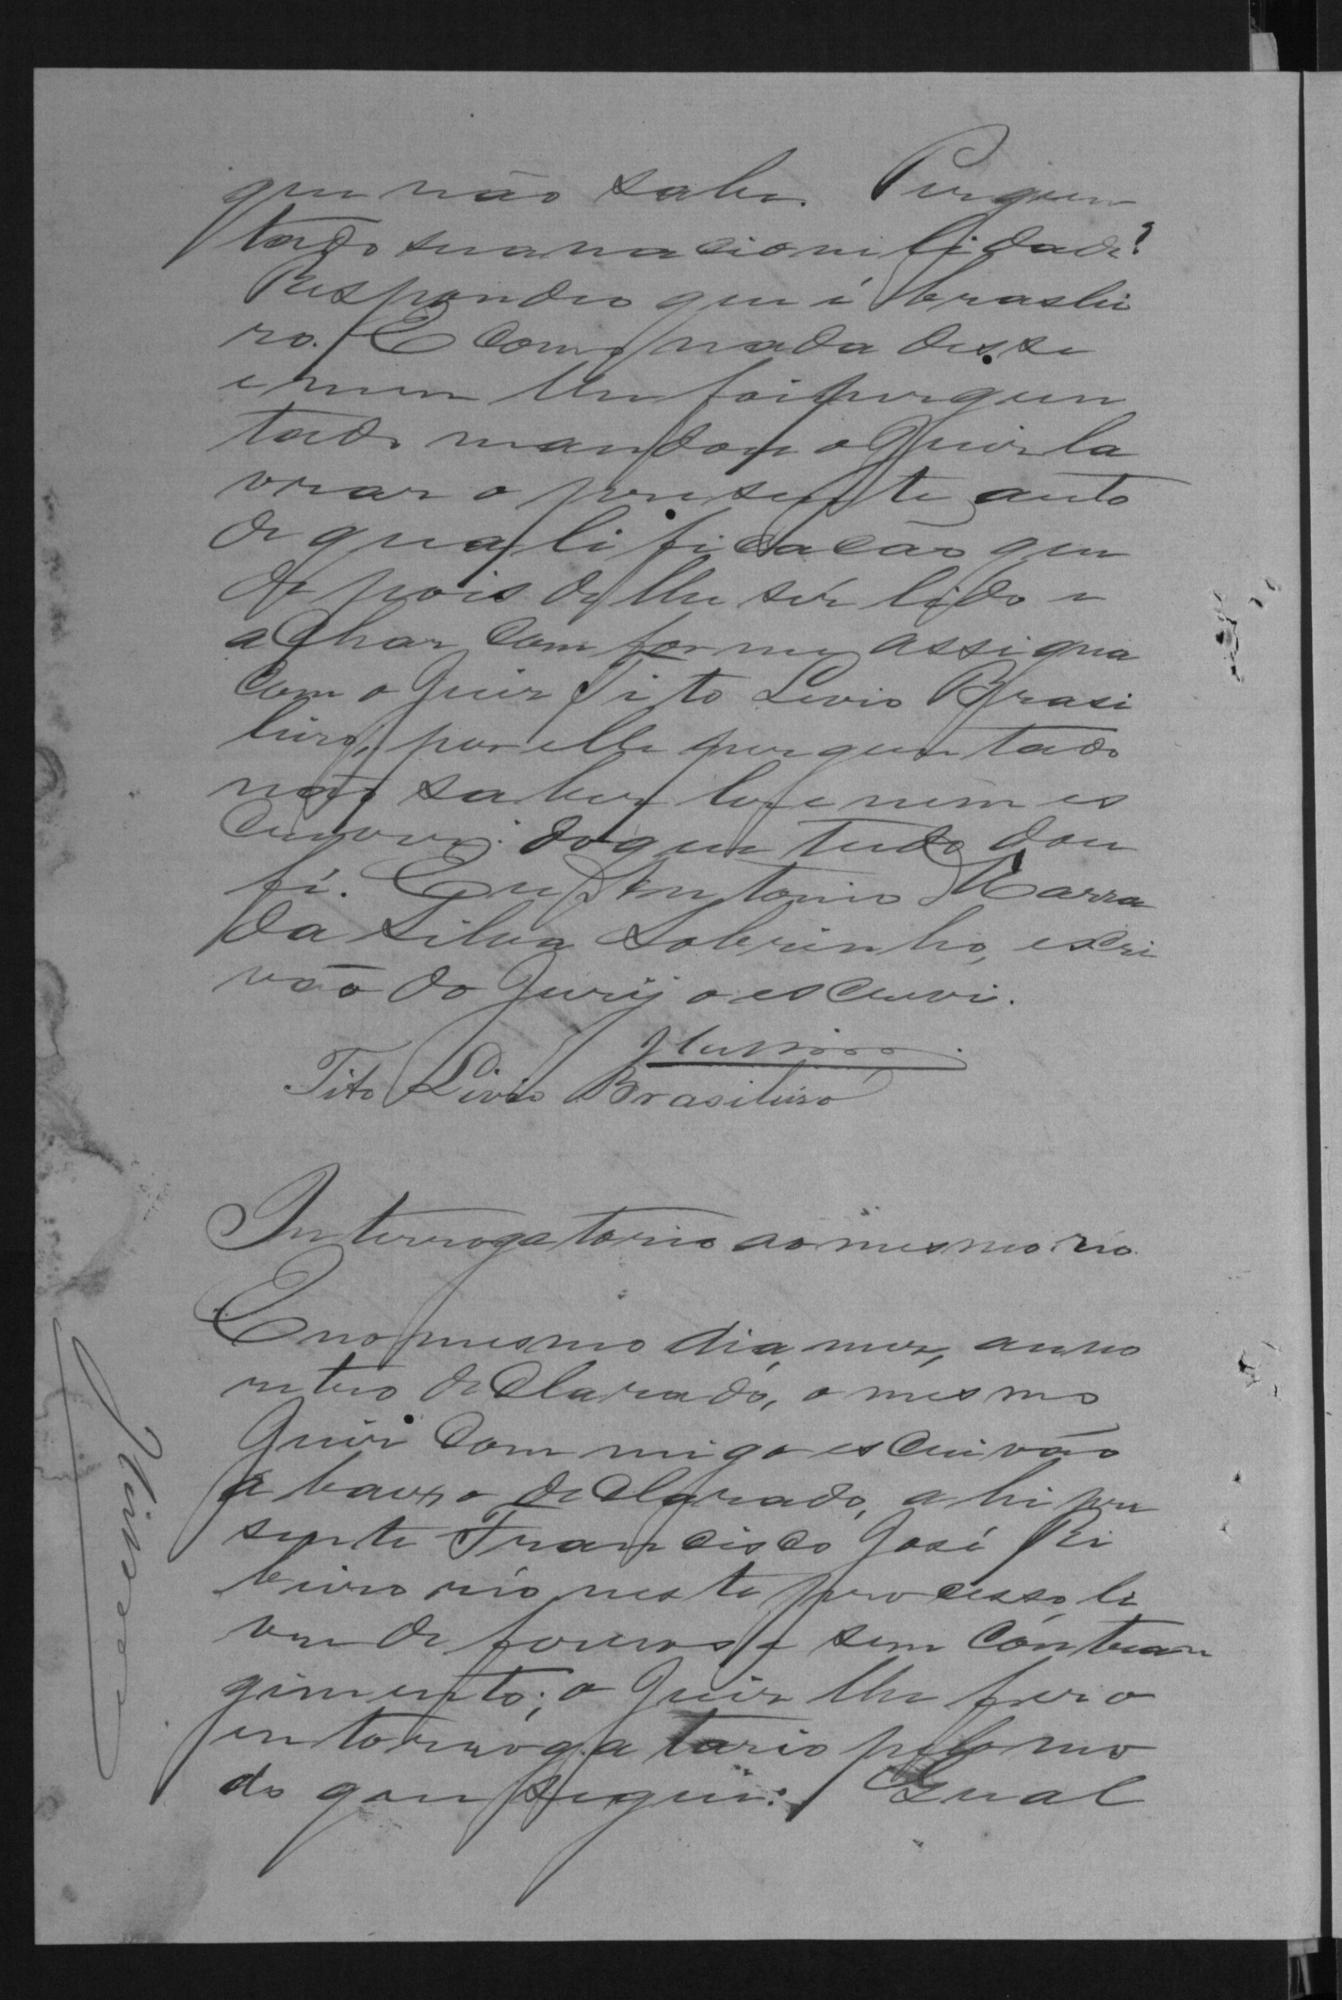 que não sabe. Pergun
tado sua nacionilidade?
Respondeo que é braslei
ro. E como nada disse
e nem lhe foi pergun
tado mandou o Juiz la
vrar o presente auto
de qualificacão que
depois de lhe sêr lido e
achar comforme assigna
com o Juiz Tito Livio Brasi
leiro, por elle perguntado
não saber ler e nem es
crever: do que tudo dou
fé. Eu, Antonio Marra
da Silva Sobrinho, escri
vão do Jury o escrevi.
Tito Livio Brasileiro
Interrogatorio ao mesmo réo
E no mesmo dia, mez, anno
retro declarado, o mesmo
Juiz commigo escrivão
abaixo declarado, ahi pre
sente Francisco José Ri
beiro réo neste processo, li
vre de ferros e sem constran
gimento; o Juiz lhe fez o
enterrogatorio pelo mo
do que segue: Qual